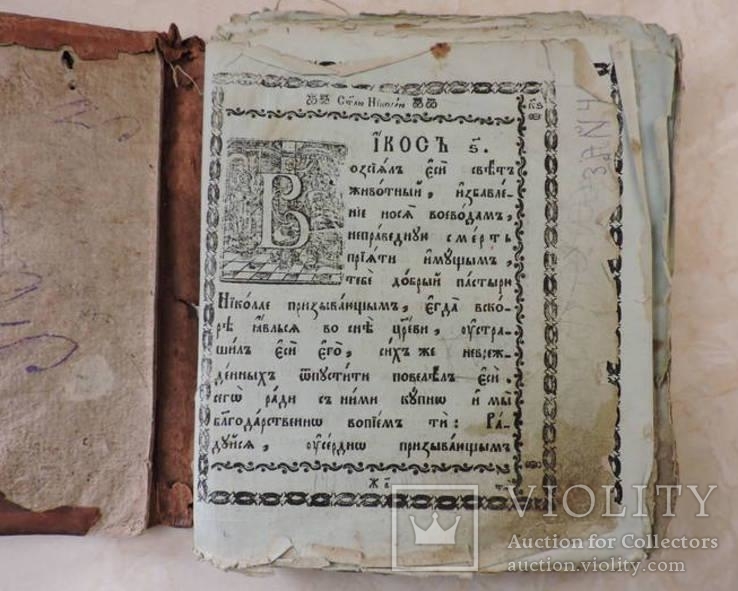 Ст҃лю Нїколѣ́ю к҃ѕ
І҆́КОСЪ ѕ҃.
Возсїѧ́лъ є҆сѝ свѣ́тъ
живо́тный, и҆збавле́-
нїе носѧ̀ воево́дамъ,
непра́ведную сме́рть
прїѧ́ти и҆му́щымъ,
тебѐ до́брый па́стырю
Нїко́лае призыва́ющымъ, є҆гда̀ вско́-
рѣ ꙗ҆ви́лсѧ во снѣ̀ царе́ви, оу҆стра-
ши́лъ є҆сѝ є҆го̀, си́хъ же невреж-
де́нныхъ ѿпусти́ти повелѣ́лъ є҆сѝ.
сегѡ̀ ра́ди съ ни́ми ку́пнѡ и҆ мы̀
благода́рственнѡ вопїе́мъ тѝ: Ра́-
дуйсѧ, оу҆се́рднѡ призыва́ющымъ
VIOLITY
Auction for Collectors
auction.violity.com